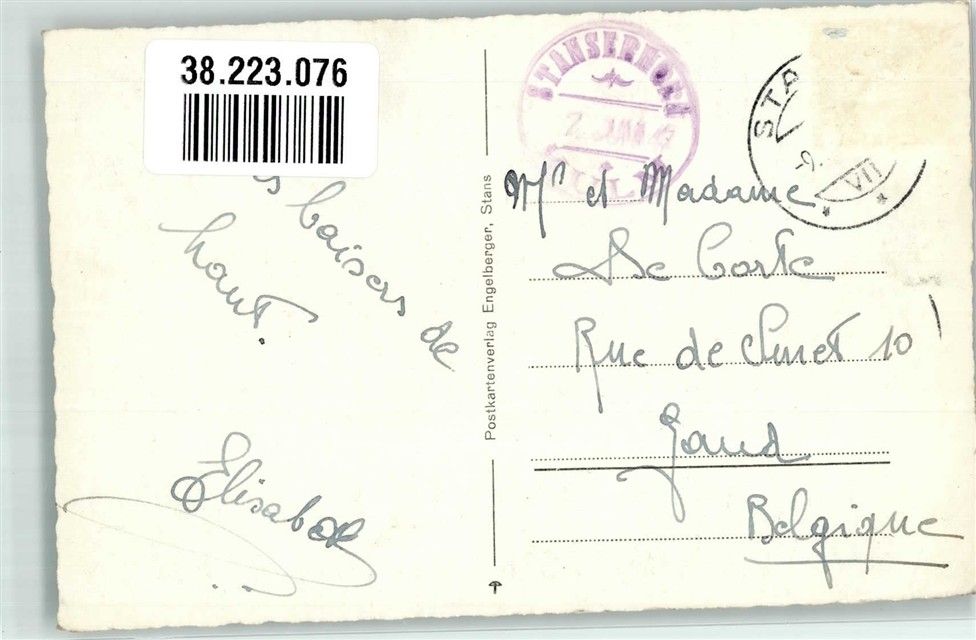 38.223.076
baisers de
haut.
Elisabeth
Postkartenverlag Engelberger, Stans
STANSERHORN
STA
VII
Mr et Madame
De Corte
Rue de Smet 10
Gand
Belgique